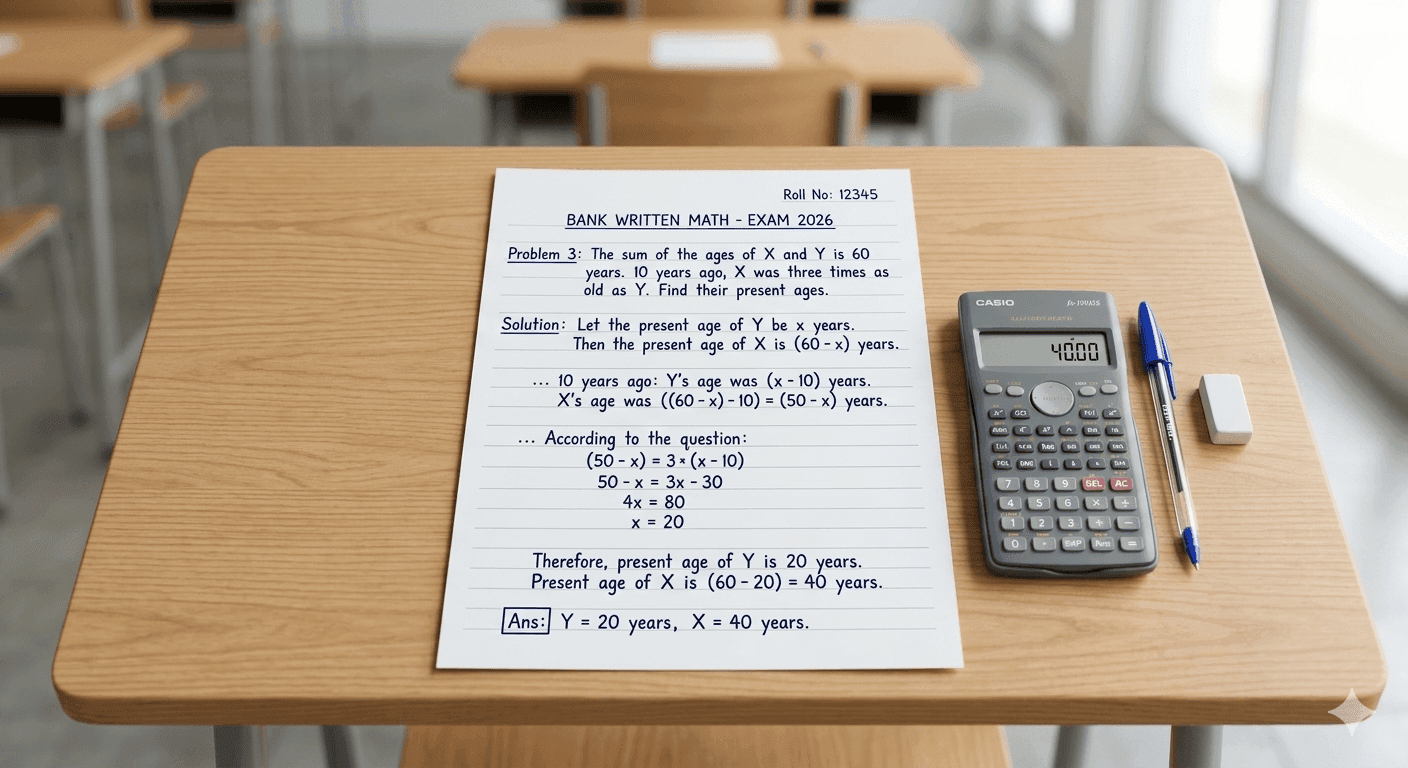 Roll No: 12345
BANK WRITTEN MATH - EXAM 2026
Problem 3: The sum of the ages of X and Y is 60
years. 10 years ago, X was three times as
old as Y. Find their present ages.
Solution: Let the present age of Y be x years.
Then the present age of X is (60 - x) years.
... 10 years ago: Y's age was (x - 10) years.
X's age was ((60 - x) - 10) = (50 - x) years.
... According to the question:
(50 - x) = 3 × (x - 10)
50 - x = 3x - 30
4x = 80
x = 20
Therefore, present age of Y is 20 years.
Present age of X is (60 - 20) = 40 years.
Ans: Y = 20 years, X = 40 years.
CASIO
40.00
7 8 9 AC
4 5 6 × ÷
1 2 3 + −
0 · =